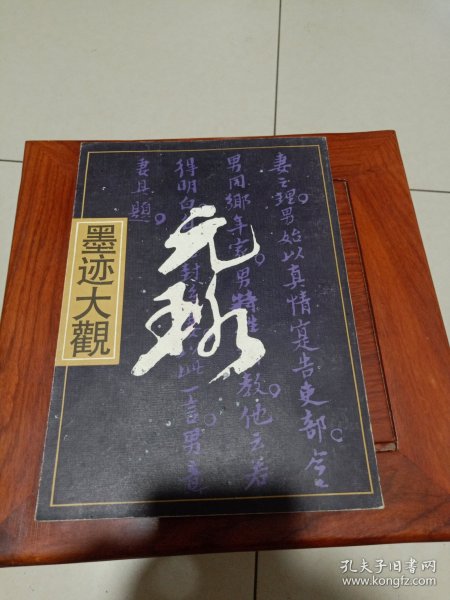 墨迹大觀
元璐
妻之理男始以真情寔告吏部。令
男同鄉年家。男
教他云若
得明白
此一言男
妻具題。
孔夫子旧书网
www.kongfz.com